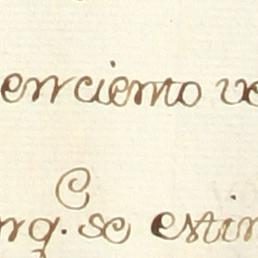 en ciento ve
C
rq. se estim